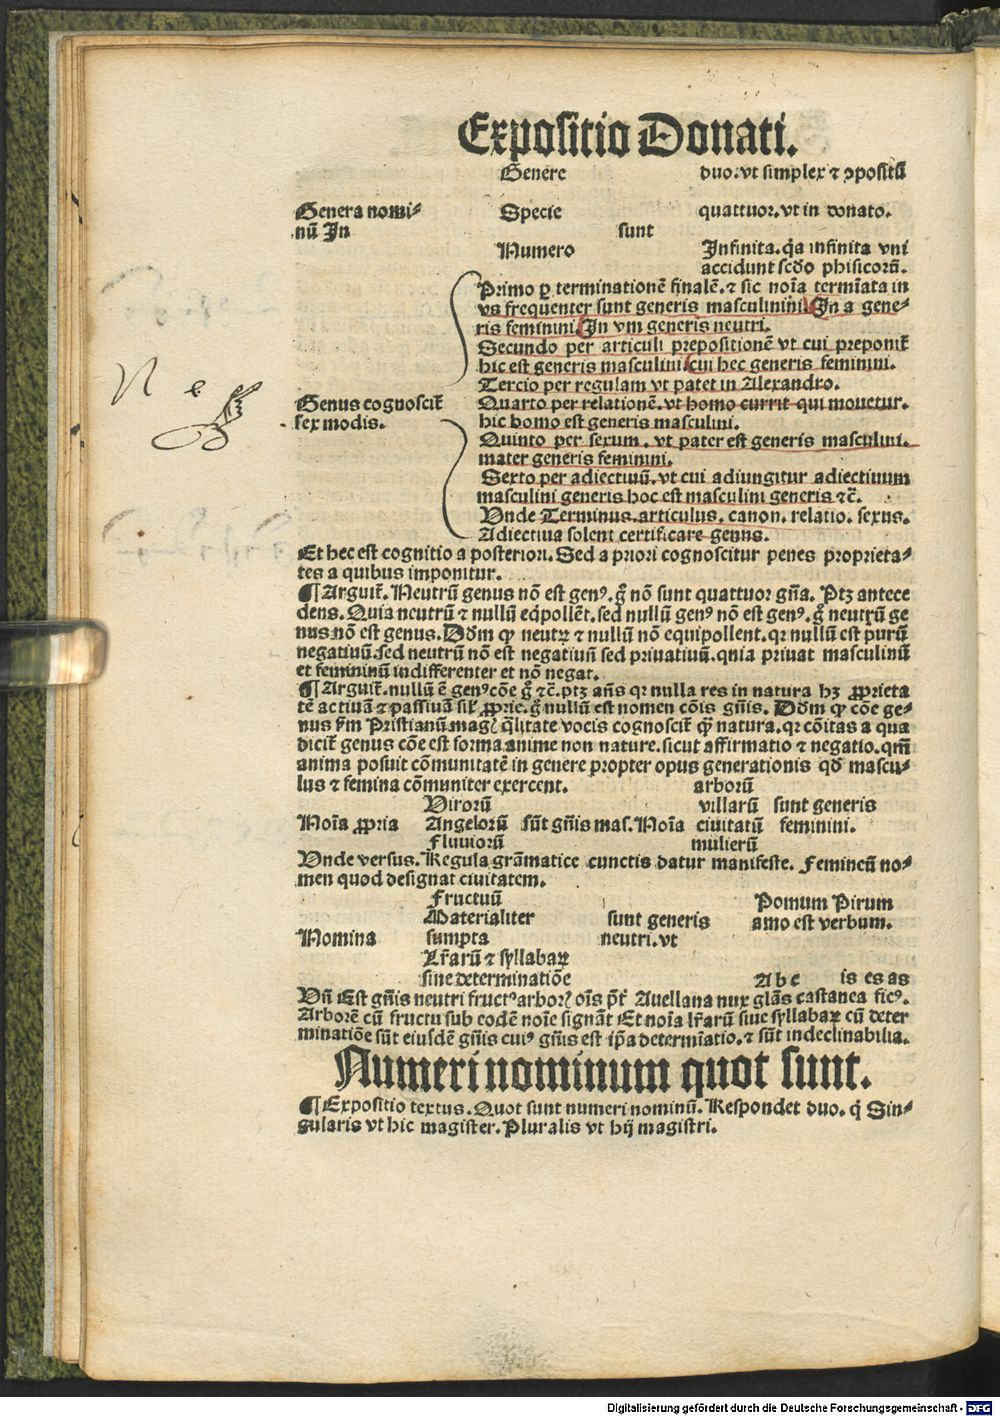 Expositio Donati.
Genere duo. vt simplex ⁊ ↄpositū
Genera nomi⸗ Specie quattuor. vt in donato.
nū In sunt
Numero Infinita. q̄a infinita vni
accidunt scd̄o phisicorū.
Primo ꝑ terminationē finalē. ⁊ sic noīa termīata in
vs frequenter sunt generis masculinini. In a gene⸗
ris feminini. In vm generis neutri.
Secundo per articuli prepositionē vt cui preponit̄
hic est generis masculini. cui hec generis feminini.
Tercio per regulam vt patet in Alexandro.
Ne
Genus cognoscit̄ Quarto per relationē. vt homo currit qui mouetur.
sex modis. hic homo est generis masculini.
Quinto per sexum. vt pater est generis masculini.
mater generis feminini.
Sexto per adiectiuū. vt cui adiungitur adiectiuum
masculini generis hoc est masculini generis ⁊c̄.
Vnde Terminus. articulus. canon. relatio. sexus.
Adiectiua solent certificare genus.
Et hec est cognitio a posteriori. Sed a priori cognoscitur penes proprieta⸗
tes a quibus imponitur.
¶ Arguit̄. Neutrū genus nō est genꝰ. g̊ nō sunt quattuor gn̄a. Ptꝫ antece
dens. Quia neutrū ⁊ nullū eq̄pollēt. sed nullū genꝰ nō est genꝰ. g̊ neutrū ge
nus nō est genus. Dd̄m ꝙ neutꝝ ⁊ nullū nō equipollent. qꝛ nullū est purū
negatiuū. sed neutrū nō est negatiuū sed priuatiuū. quia priuat masculinū
et femininū indifferenter et nō negat.
¶ Arguit̄. nullū ē genꝰ cōe g̊ ⁊c̄. ptꝫ an̄s qꝛ nulla res in natura hꝫ ꝓprieta
tē actiuā ⁊ passiuā sil̄ ꝓprie. g̊ nullū est nomen cōis gn̄is. Dd̄m ꝙ cōe ge⸗
nus fm̄ Pristianū. magꝭ q̄litate vocis cognoscit̄ ꝙ̄ natura. qꝛ cōitas a qua
dicit̄ genus cōe est forma anime non nature. sicut affirmatio ⁊ negatio. qm̄
anima posuit cōmunitatē in genere propter opus generationis qd̄ mascu⸗
lus ⁊ femina cōmuniter exercent. arborū
Virorū villarū sunt generis
Noīa ꝓpria Angelorū sūt gn̄is mas. Noīa ciuitatū feminini.
Fluuiorū mulierū
Vnde versus. Regula grāmatice cunctis datur manifeste. Femineū no⸗
men quod designat ciuitatem.
Fructuū Pomum Pirum
Materialiter sunt generis amo est verbum.
Nomina sumpta neutri. vt
Lr̄arū ⁊ syllabaꝝ
sine determinatiōe A b c is es as
Vn̄ Est gn̄is neutri fructꝰ arborꝭ oīs p̄t̄ Auellana nux glās castanea ficꝰ.
Arborē cū fructu sub eodē noīe signāt Et noīa lr̄arū siue syllabaꝝ cū deter
minatiōe sūt eiusdē gn̄is cuiꝰ gn̄is est ip̄a determīatio. ⁊ sūt indeclinabilia.
Numeri nominum quot sunt.
¶ Expositio textus. Quot sunt numeri nominū. Respondet duo. q̇ Sin⸗
gularis vt hic magister. Pluralis vt hij magistri.
Digitalisierung gefördert durch die Deutsche Forschungsgemeinschaft - DFG